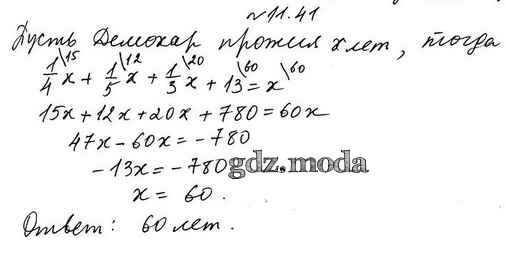 №11.41
Пусть Демохар прожил x лет, тогда
1/4\15 x + 1/5\12 x + 1/3\20 x + 13\60 = x\60
15x + 12x + 20x + 780 = 60x
47x - 60x = -780
-13x = -780
gdz.moda
x = 60.
Ответ: 60 лет.